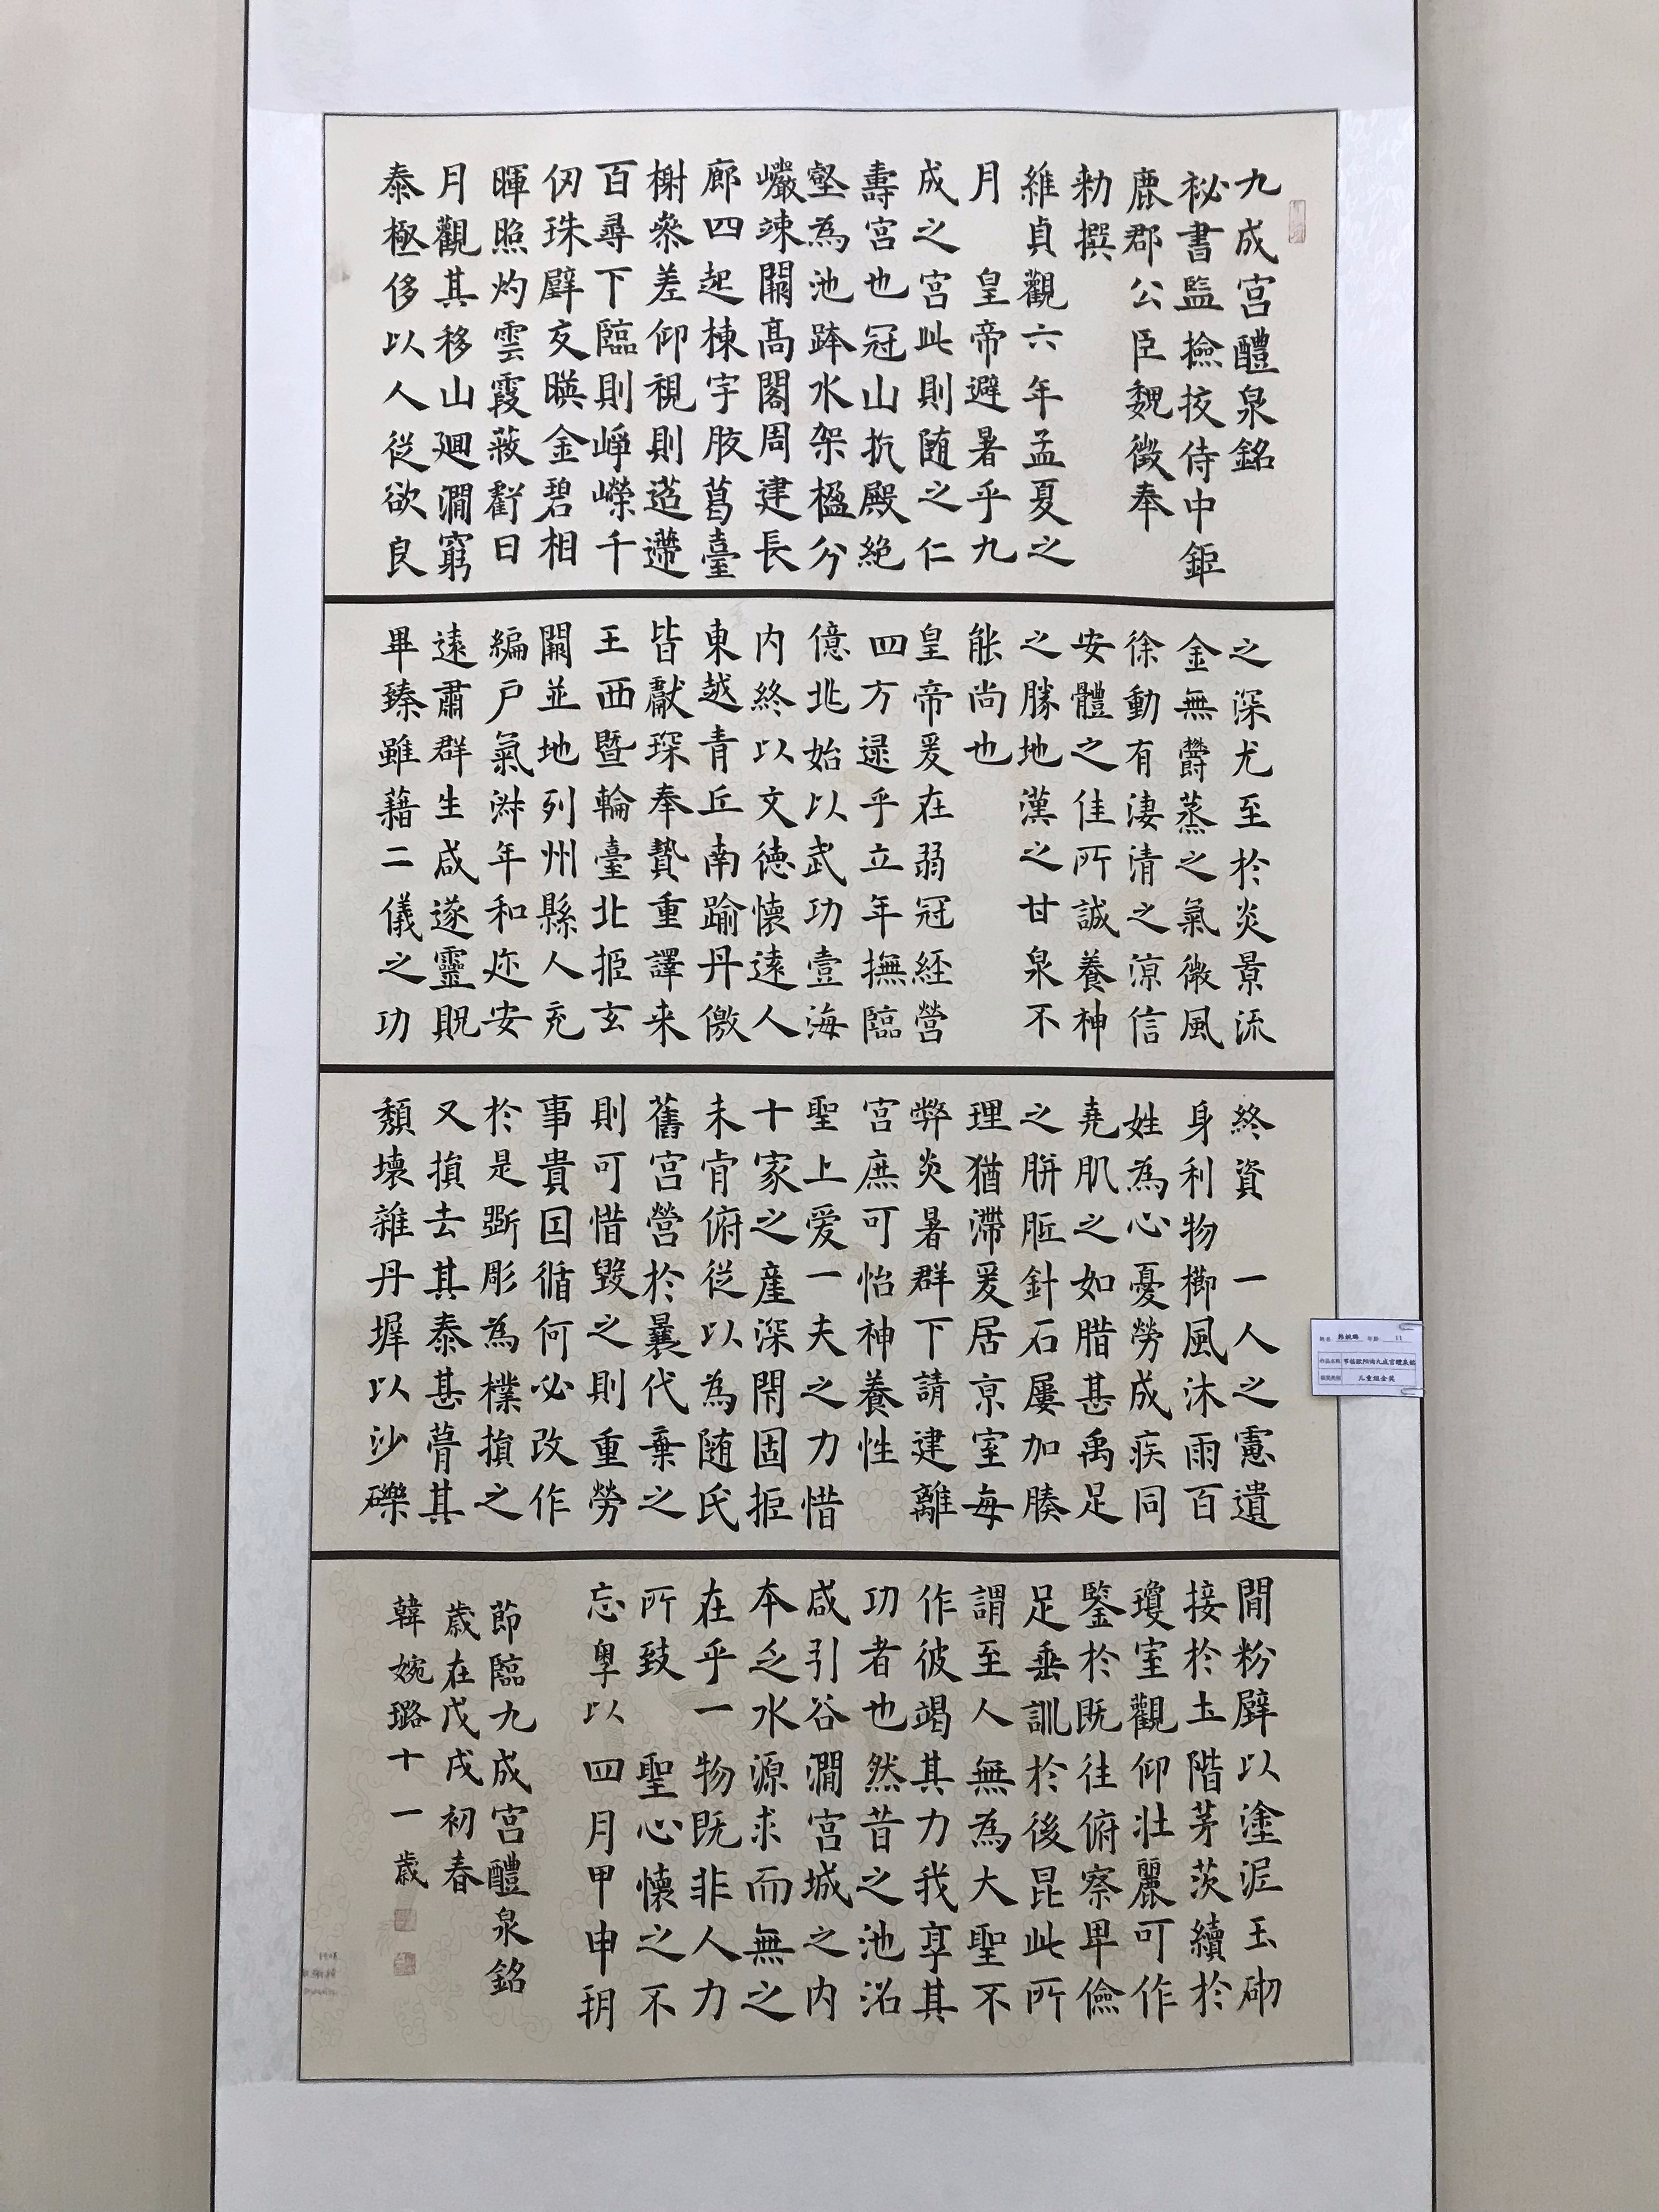 九成宮醴泉銘
祕書監撿挍侍中鉅
鹿郡公臣魏徵奉
勑撰
維貞觀六年孟夏之
月 皇帝避暑乎九
成之宮此則随之仁
壽宮也冠山抗殿絶
壑為池跨水架楹分
巖竦闕高閣周建長
廊四起棟宇膠葛臺
榭叅差仰視則迢遰
百尋下臨則崢嶸千
仞珠璧交暎金碧相
暉照灼雲霞蔽虧日
月觀其移山廻澗窮
泰極侈以人従欲良
之深尤至於炎景流
金無鬱蒸之氣微風
徐動有淒清之涼信
安體之佳所誠養神
之勝地漢之甘泉不
能尚也
皇帝爰在弱冠經營
四方逮乎立年撫臨
億兆始以武功壹海
内終以文德懷遠人
東越青丘南踰丹儌
皆獻琛奉贄重譯来
王西暨輪臺北拒玄
闕並地列州縣人充
編戶氣淑年和迩安
遠肅群生咸遂靈貺
畢臻雖藉二儀之功
終資 一人之慮遺
身利物櫛風沐雨百
姓為心憂勞成疾同
堯肌之如腊甚禹足
之胼胝針石屢加腠
理猶滯爰居京室每
弊炎暑群下請建離
宮庶可怡神養性
聖上爱一夫之力惜
十家之産深閇固拒
未肯俯従以為随氏
舊宮營於曩代棄之
則可惜毀之則重勞
事貴因循何必改作
於是斲彫為樸損之
又損去其泰甚葺其
頹壞雜丹墀以沙礫
間粉壁以塗泥玉砌
接於土階茅茨續於
瓊室觀仰壮麗可作
鑒於既往俯察卑儉
足垂訓於後昆此所
謂至人無為大聖不
作彼竭其力我享其
功者也然昔之池沼
咸引谷澗宮城之内
本乏水源求而無之
在乎一物既非人力
所致 聖心懷之不
忘粤以四月甲申朔
節臨九成宮醴泉銘
歲在戊戌初春
韓婉璐十一歲
姓名 韩婉璐 年龄 11
作品名称 节临欧阳询九成宫醴泉铭
获奖类别 儿童组金奖